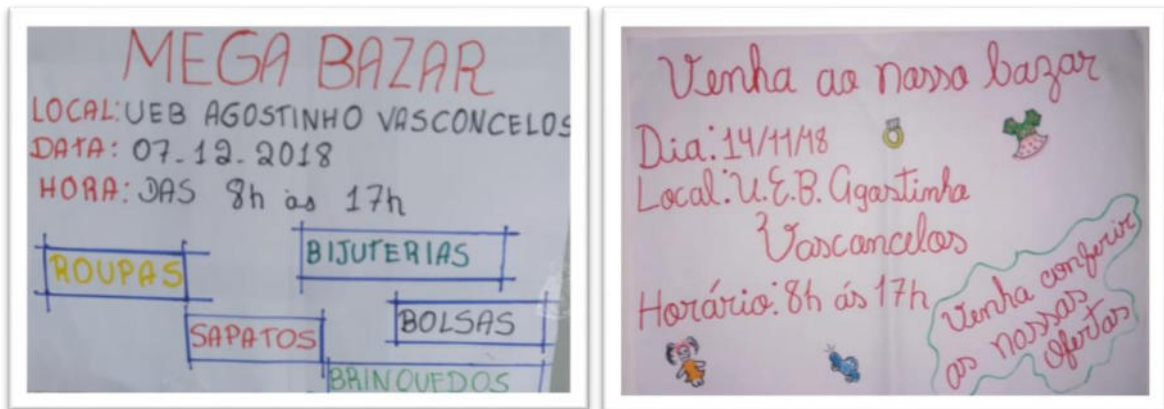 MEGA BAZAR
LOCAL: UEB AGOSTINHO VASCONCELOS
DATA: 07-12-2018
HORA: DAS 8h às 17h
ROUPAS
BIJUTERIAS
SAPATOS
BOLSAS
BRINQUEDOS
Venha ao nosso bazar
Dia: 14/11/18
Local: U.E.B. Agostinho
Vasconcelos
Horário: 8h ás 17h
Venha conferir
as nossas
ofertas